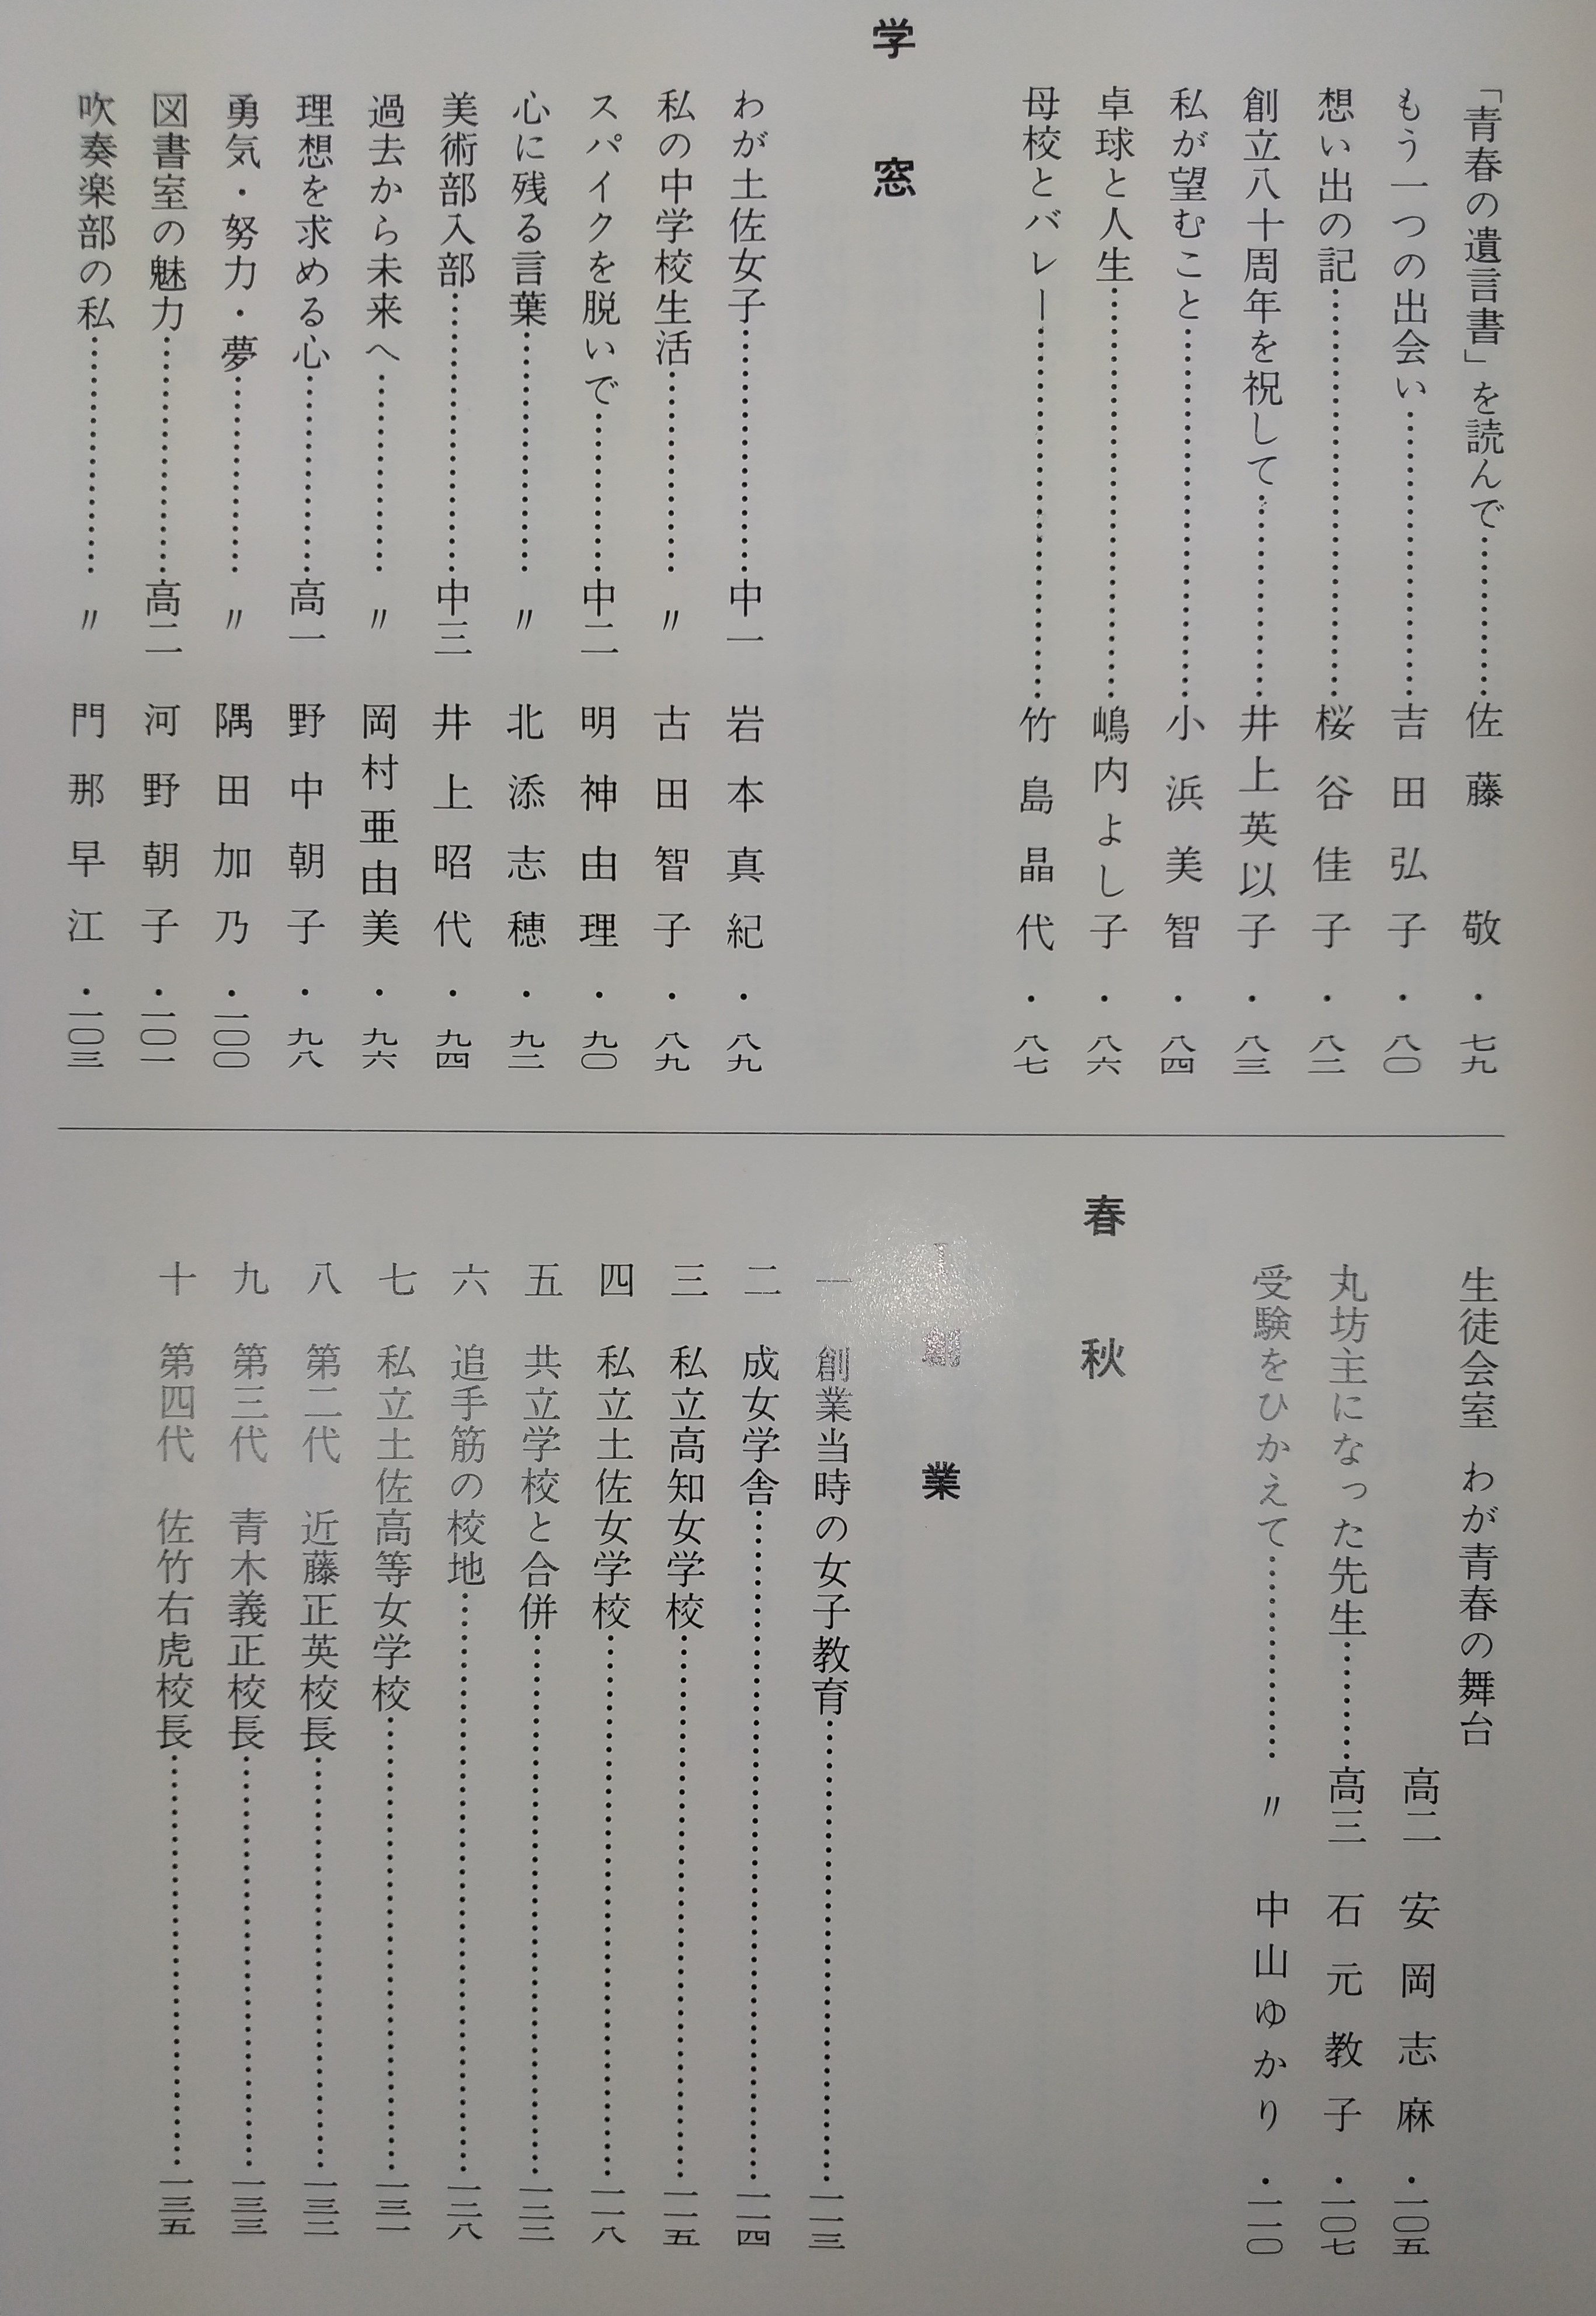 「青春の遺言書」を読んで…………佐藤 敬・七九
もう一つの出会い……………………吉田弘子・八〇
想い出の記……………………………桜谷佳子・八二
創立八十周年を祝して………………井上英以子・八三
私が望むこと…………………………小浜美智・八四
卓球と人生……………………………嶋内よし子・八六
母校とバレー…………………………竹島晶代・八七
学窓
わが土佐女子………………中一 岩本真紀・八九
私の中学校生活……………〃 古田智子・八九
スパイクを脱いで…………中二 明神由理・九〇
心に残る言葉………………〃 北添志穂・九二
美術部入部…………………中三 井上昭代・九四
過去から未来へ……………〃 岡村亜由美・九六
理想を求める心……………高一 野中朝子・九八
勇気・努力・夢……………〃 隅田加乃・一〇〇
図書室の魅力………………高二 河野朝子・一〇一
吹奏楽部の私………………〃 門那早江・一〇三
生徒会室 わが青春の舞台
高二 安岡志麻・一〇五
丸坊主になった先生………高三 石元教子・一〇七
受験をひかえて……………〃 中山ゆかり・一一〇
春秋
I 創業
一 創業当時の女子教育……………………一一三
二 成女学舎…………………………………一一四
三 私立高知女学校…………………………一一五
四 私立土佐女学校…………………………一一八
五 共立学校と合併…………………………一二二
六 追手筋の校地……………………………一二八
七 私立土佐高等女学校……………………一三一
八 第二代 近藤正英校長…………………一三二
九 第三代 青木義正校長…………………一三三
十 第四代 佐竹右虎校長…………………一三五